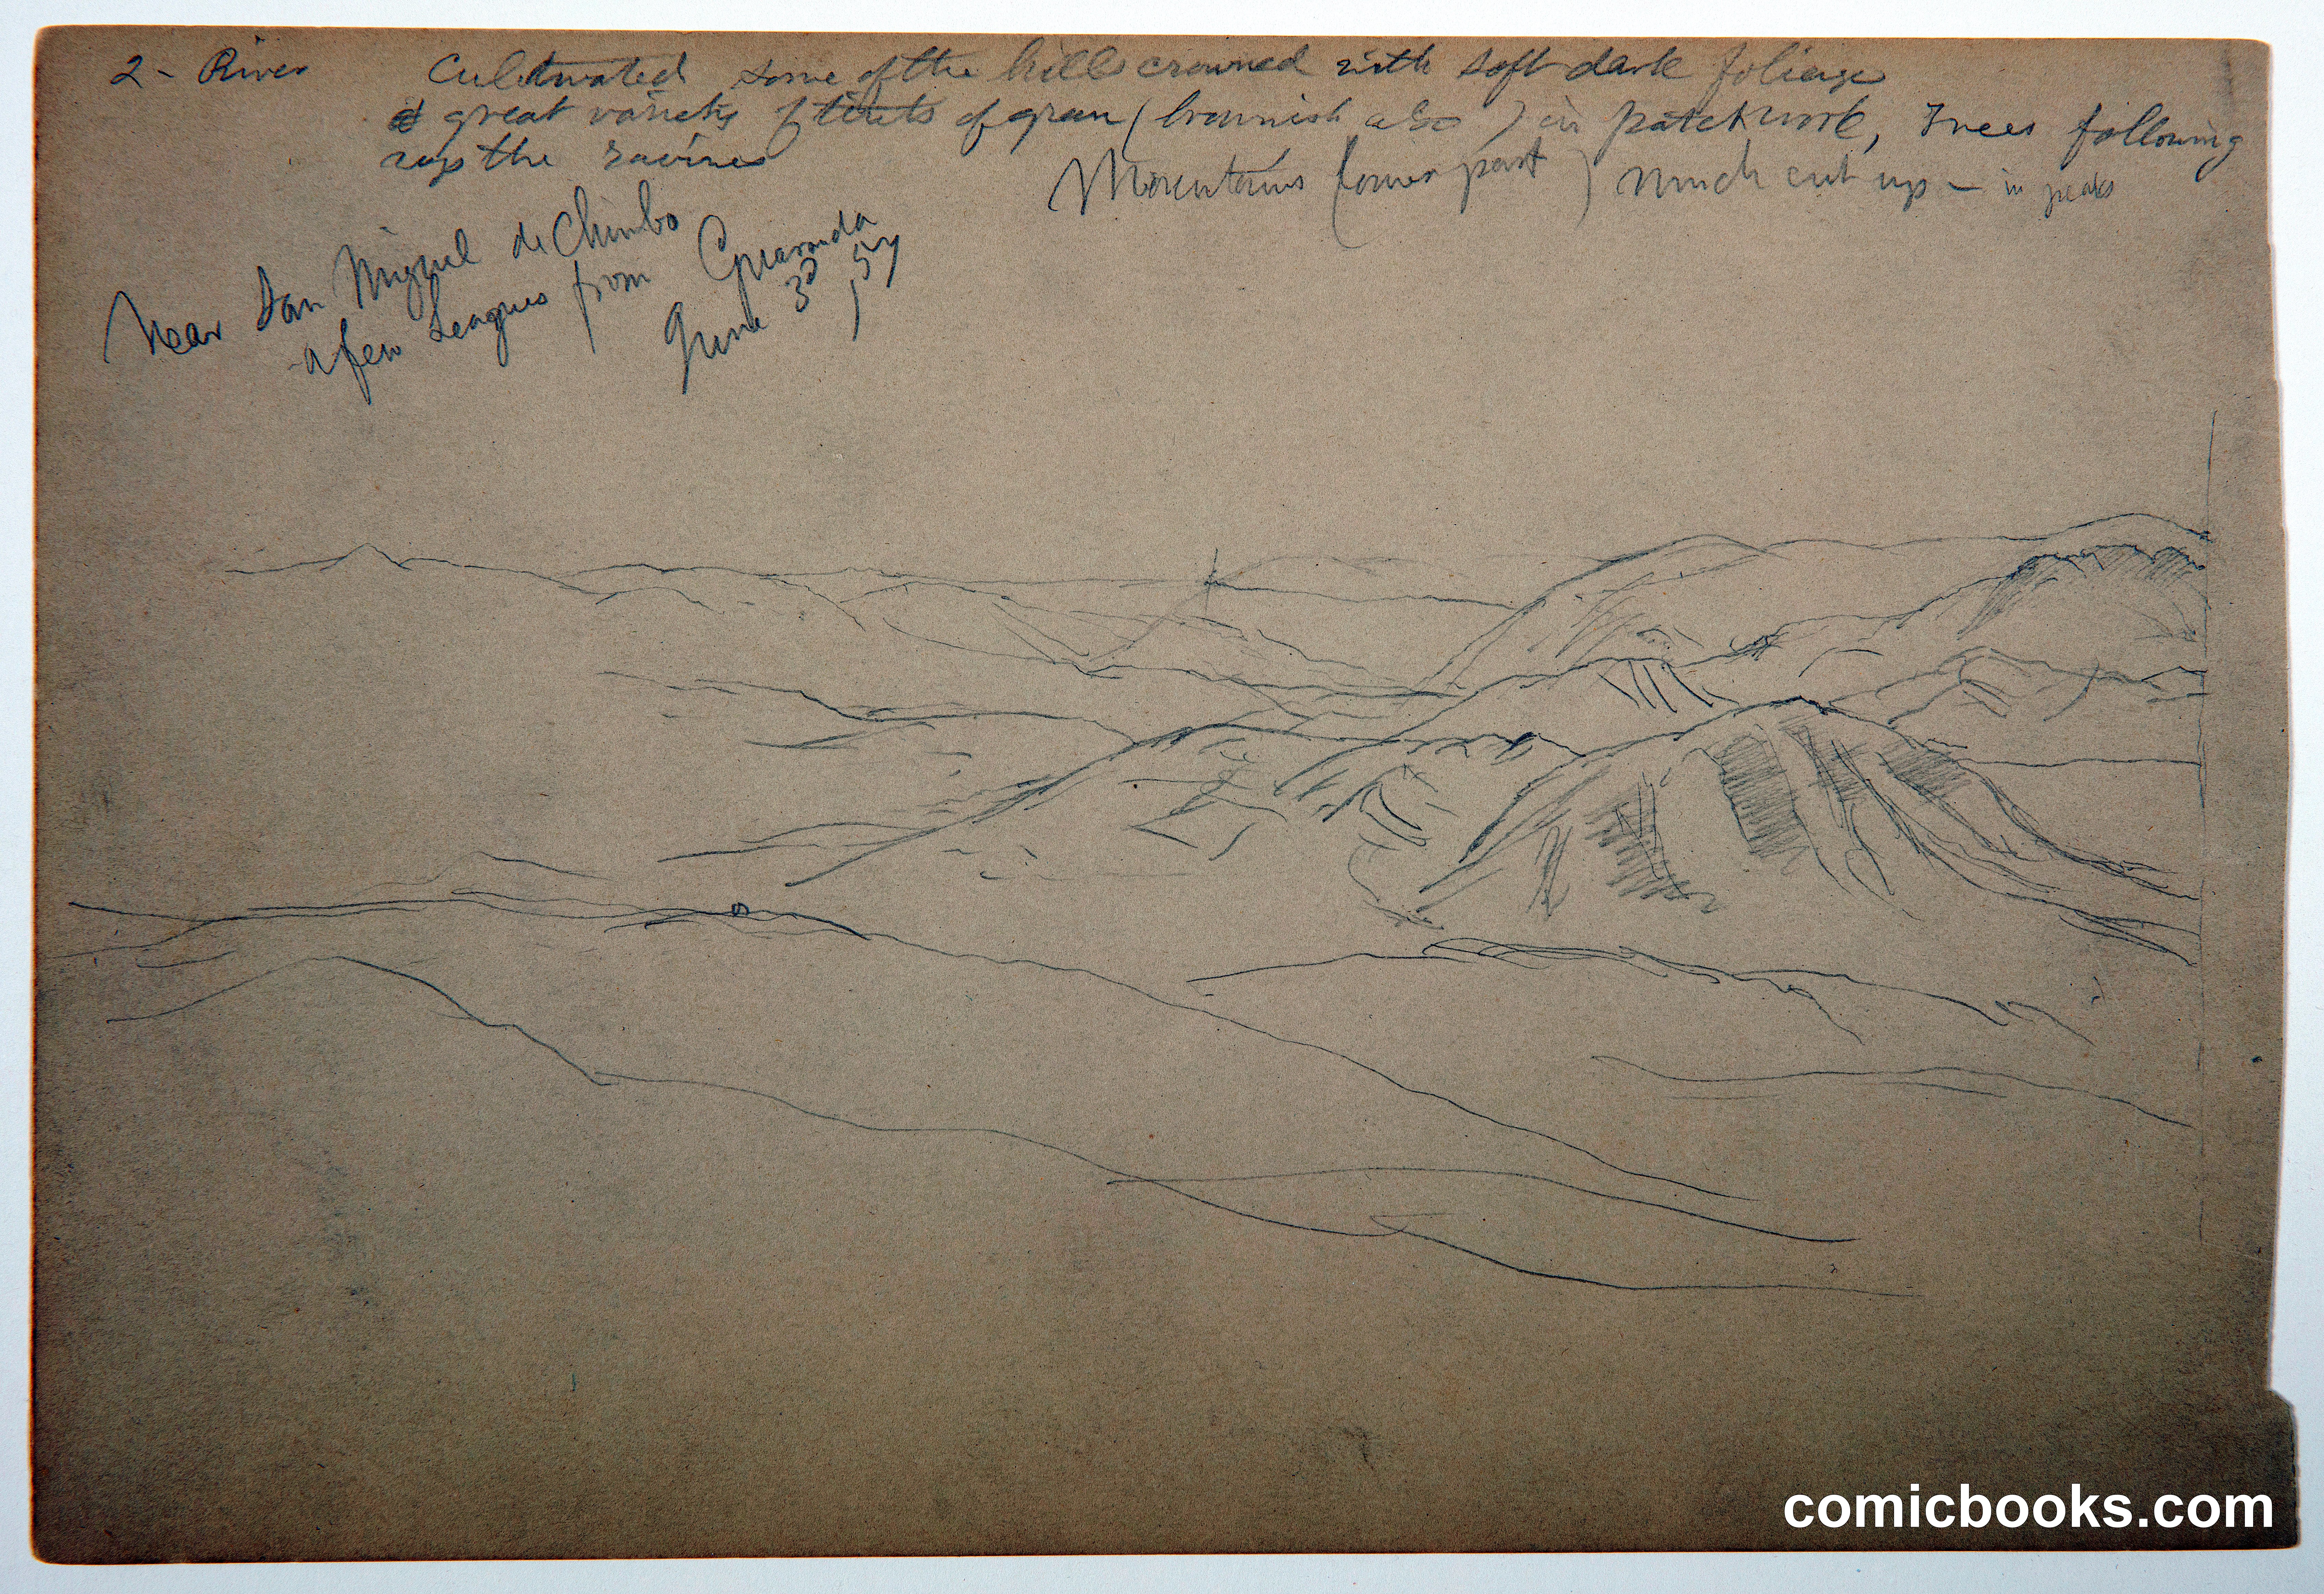 2 - River Cultivated some of the hills crowned with soft dark foliage
great variety of tints of green (brownish also) in patchwork, Trees following
up the ravines
Mountains (lower part) much cut up - in peaks
Near San Miguel de Chimbo
a few Leagues from Guaranda
June 3d, 57
comicbooks.com